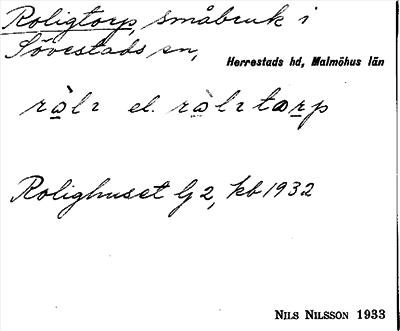 Roligtorp, småbruk i
Sövestads sn,
Herrestads hd, Malmöhus län
el.
Rolighuset Lj 2, kb 1932
NILS NILSSON 1933